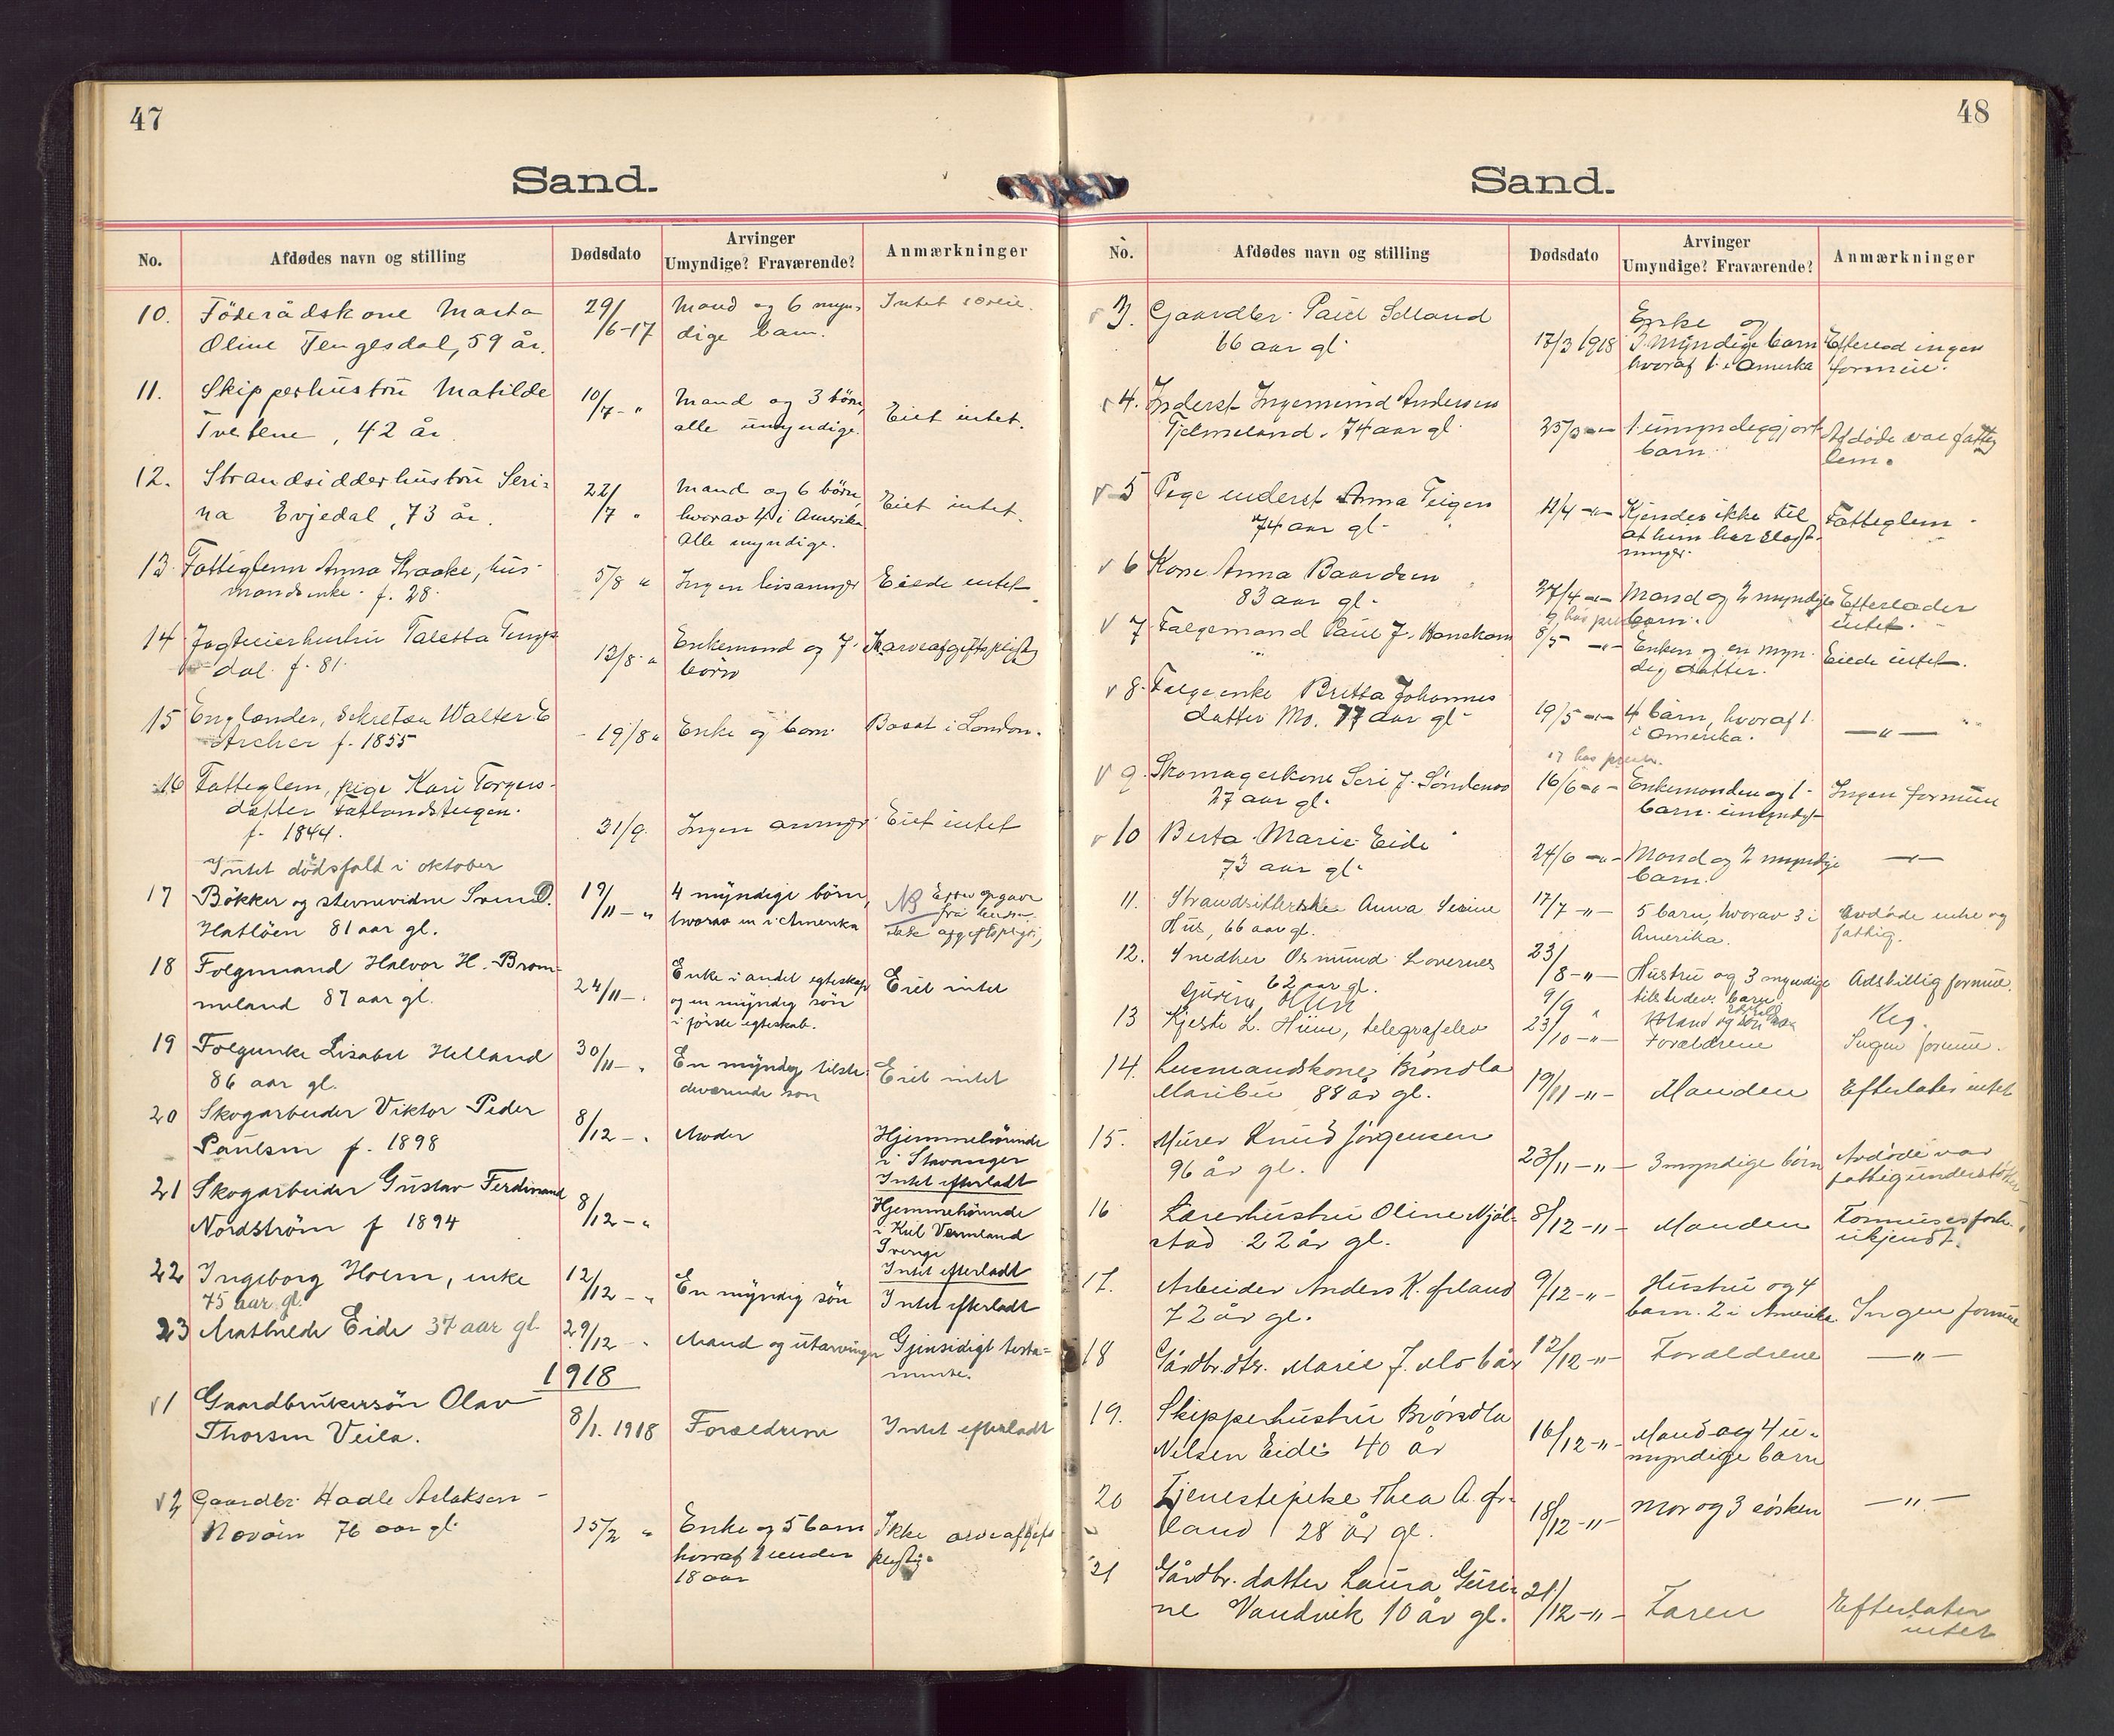 47
Sand.
No.
Afdødes navn og stilling
Dødsdato
Arvinger
Umyndige? Fraværende?
Anmærkninger
10. Föderådskone Marta 29/6-17 Mand og 6 myn- Intet
Oline Tengesdal, 59 år. dige barn.
11. Skipperhustru Matilde 10/7 - " Mand og 3 börn, Eiet intet.
Tvetene, 42 år alle umyndige.
12. Strandsidderhustru Seri- 22/7 " Mand og 6 börn, Eiet intet.
na Evjedal, 73 år. hvorav 4 i Amerika
Alle myndige.
13. Fattiglem Anna Kraake, hus- 5/8 " Ingen livsarvinger Eiede intet
mandsenke. f. 28.
14 Jagteierhustru Taletta Tengs- 12/8 " Enkemand og 7
dal. f. 81. börn
15 Englænder, Sekretær Walter E 19/8 " Enke og barn. Bosat i London.
Archer f. 1855
16 Fatteglem, pige Kari Torgers- 31/9. Ingen arvinger Eiet intet
datter Fatlandsteigen.
f. 1844.
Intet dödsfald i oktober
17 Bökker og stevnevidne Svend D. 19/11 - " 4 myndige börn, NB Efter opgave
Hatlöen 81 aar gl. hvorav en i Amerika fra
18 Folgemand Halvor H. Brom- 24/11 - " Enke i andet egteskap Eiet intet
meland 87 aar gl. og en myndig sön
i förste egteskab.
19 Folgeenke Lisabet Helland 30/11 - " En myndig tilste- Eiet intet
86 aar gl. deværende sön
20 Skogarbeider Viktor Peder 8/12 - " Moder Hjemmehörende
Paulsen f. 1898 i Stavanger
Intet efterladt
21 Skogarbeider Gustav Ferdinand 8/12 - " Hjemmehörende
Nordström f 1894 i Kil Vermland
Sverige
Intet efterladt
22 Ingeborg Holm, enke 12/12 - " En myndig sön Intet efterladt
75 aar gl.
23 Mathilde Eide 37 aar gl. 29/12 - " Mand og utarvinger Gjensidigt testa-
mente.
1918
v 1 Gaardbrukersön Olav 8/1. 1918 Forældrene Intet efterladt
Thorsen Veila.
v 2 Gaardbr. Hadle Aslaksen 15/2 " Enke og 5 barn Ikke arveafgifts
76 aar gl. hvoraf 1 under pligtig.
18 aar
48
Sand.
No.
Afdødes navn og stilling
Dødsdato
Arvinger
Umyndige? Fraværende?
Anmærkninger
v 3. Gaardbr. Paul Selland Enke og
66 aar gl. 17/3 1918 myndige barn Efterlod ingen
hvoraf 1 i Amerika formue.
v 4. Inderst Ingemund Andersen
Tjelmeland. 74 aar gl. 25/3 -"- 1 umyndiggjort Afdøde var fattig
barn. lem.
v 5 Pige inderst Anna Teigen 11/4 -"- Kjendes ikke til Fatteglem
74 aar gl. at hun har slegt-
ninger.
v 6 Kone Anna Baardsen
83 aar gl. 27/4 -"- Mand og 2 myndige Efterlader
barn. intet.
v 7. Følgemand Paul J. Hanakam 8/5 -"- Enken og en myn- Eiede intet.
dig datter.
v 8. Følgeenke Britta Johannes
datter Mo. 77 aar gl. 19/5 -"- 4 barn, hvoraf 1 -"-
i Amerika.
17 hos presten.
v 9. Skomagerkone Seri J. 16/6 -"- Enkemanden og 1 Ingen formue
27 aar gl. barn umyndigt
v 10 Berta Marie Eide
73 aar gl. 24/6 -"- Mand og 2 myndige -"-
barn.
11. Strandsitterske Anna Serine 17/7 -"- 5 barn, hvorav 3 i Avdöde enke og
Hus, 66 aar gl. Amerika. fattig.
12. Snedker Osmund Lovernes 23/8 -"- Hustru og 3 myndige Adskillig formue.
62 aar gl. tilstedev. barn
Gurina Olsen 9/9 " Mand og Reg.
13 Kjeste L. Hiim, telegrafelev 23/10 -"- Forældrene Ingen formue.
14. Lusmandskone Bröndla 19/11 -"- Manden Efterlater intet
Maribu 88 år gl.
15. Murer Knud Jörgensen 23/11 -"- 3 myndige börn Avdöde var
96 år gl. fattigunderstöttet
16 Lærerhustru Oline Mjöl- 8/12 -"- Manden Formuesforh.
stad 22 år gl. ukjendt.
17. Arbeider Anders K. Örland 9/12 -"- Hustru og 4
72 år gl. barn. 2 i Amerika Ingen formue
18 Gårdbr.dtr. Marie J. Mobår 12/12 -"- Forældrene -"-
19. Skipperhustru Bröndla 16/12 -"- Mand og 4 u-
Nilsen Eide 40 år myndige barn
20 Tjenestepike Thea A. Ör- 18/12 -"- Mor og 3 sösken -"-
land 28 år gl.
21 Gårdbr. datter Laura Guri- 21/12 -"- Faren Efterlater
ne Vandvik 10 år gl. intet